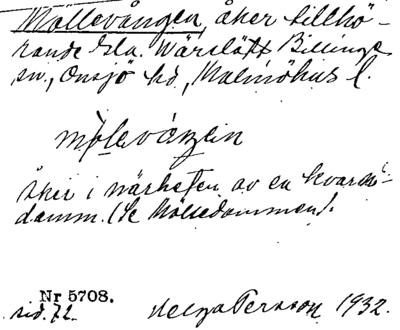 Möllevången, åker tillhö-
rande Gla. Wärslätt Billinge
sn., Onsjö hd., Malmöhus l.
åker i närheten av en kvarn-
damm. (Se Mölledammen).
Nr 5708.
sid. 72. Helga Persson 1932.